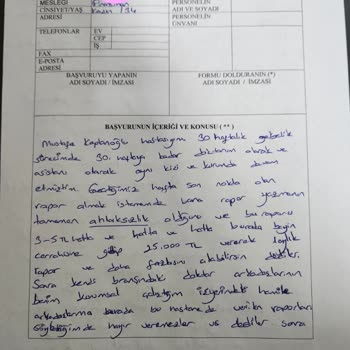 MESLEĞİ
CİNSİYET/YAŞ Kadın / 34
ADRESİ
PERSONELİN
ADI VE SOYADI
PERSONELİN
ÜNVANI
TELEFONLAR EV
CEP
İŞ
FAX
E-POSTA
ADRESİ
BAŞVURUYU YAPANIN
ADI SOYADI / İMZASI
FORMU DOLDURANIN (*)
ADI SOYADI / İMZASI
BAŞVURUNUN İÇERİĞİ VE KONUSU ( ** )
Mustafa Kaplanoğlu hastasıyım 30 haftalık gebelik
sürecimde 30. haftaya kadar doktorum olarak ve
asistanı olarak aynı kişi ve kurumda devam
etmiştim. Geçtiğimiz hafta son nokta olan
rapor almak istememde bana rapor yazmanın
tamamen ahlaksızlık olduğunu ve bu raporu
3-5 TL hatta ve hatta ve hatta burada beyin
25.000 TL vererek
rapor ve daha fazlasını alabilirsin dediler.
Sonra kendi branşındaki doktor arkadaşlarının
benim kurumsal çalıştığım işyerindeki hamile
arkadaşlarıma burada bu hastanede verilen raporları
söylediğimde hayır veremezler dediler sonra